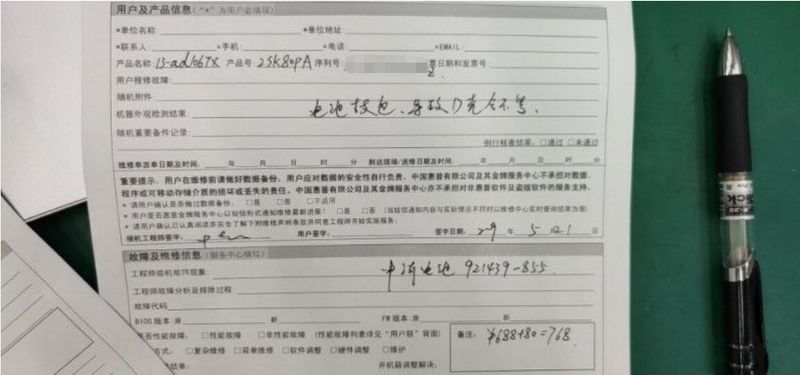 用户及产品信息（“*”为用户必填项）
*单位名称： *单位地址：
*联系人： *手机： *电话： *EMAIL：
产品名称：13-ad106TX 产品号：2SK80PA 序列号： 票日期和发票号：
用户报修故障：
随机附件：
机器外观检测结果： 电池鼓包、导致D壳合不善。
随机重要备件记录：
例行核查结果：□通过 □未通过
维修单派单日期及时间： 年 月 日 时 分 到达现场/送修日期及时间： 年 月 日 时 分
重要提示：用户在维修前请做好数据备份，用户应对数据的安全性自行负责，中国惠普有限公司及其金牌服务中心不承担对数据、
程序或可移动存储介质的损坏或丢失的责任。中国惠普有限公司及其金牌服务中心亦不承担对非惠普软件及盗版软件的服务支持。
* 请用户确认是否做过数据备份。 □是 □否 □不适用
* 用户是否愿意金牌服务中心以短信形式通知维修最新进展： □是 □否 （当短信通知内容与实际情况不符时以维修中心实时查询结果为准）
* 请用户确认已认真阅读并完全了解下附维修声明条款并同意工程师开始实施服务。
接机工程师签字： 用户签字： 签字日期：29 年 5 月 21 日
故障及维修信息（服务中心填写）
工程师验机故障现象： 申请电池 921439-855
工程师故障分析及排除过程：
故障代码：
BIOS 版本：原 新 FW 版本：原 新
是否性能故障： □性能故障 □非性能故障 （性能故障列表详见“用户联”背面）
方式： □复杂维修 □简单维修 □软件调整 □硬件调整 □维护
结果： 开机箱调整解决：
备注： ¥688+80=768